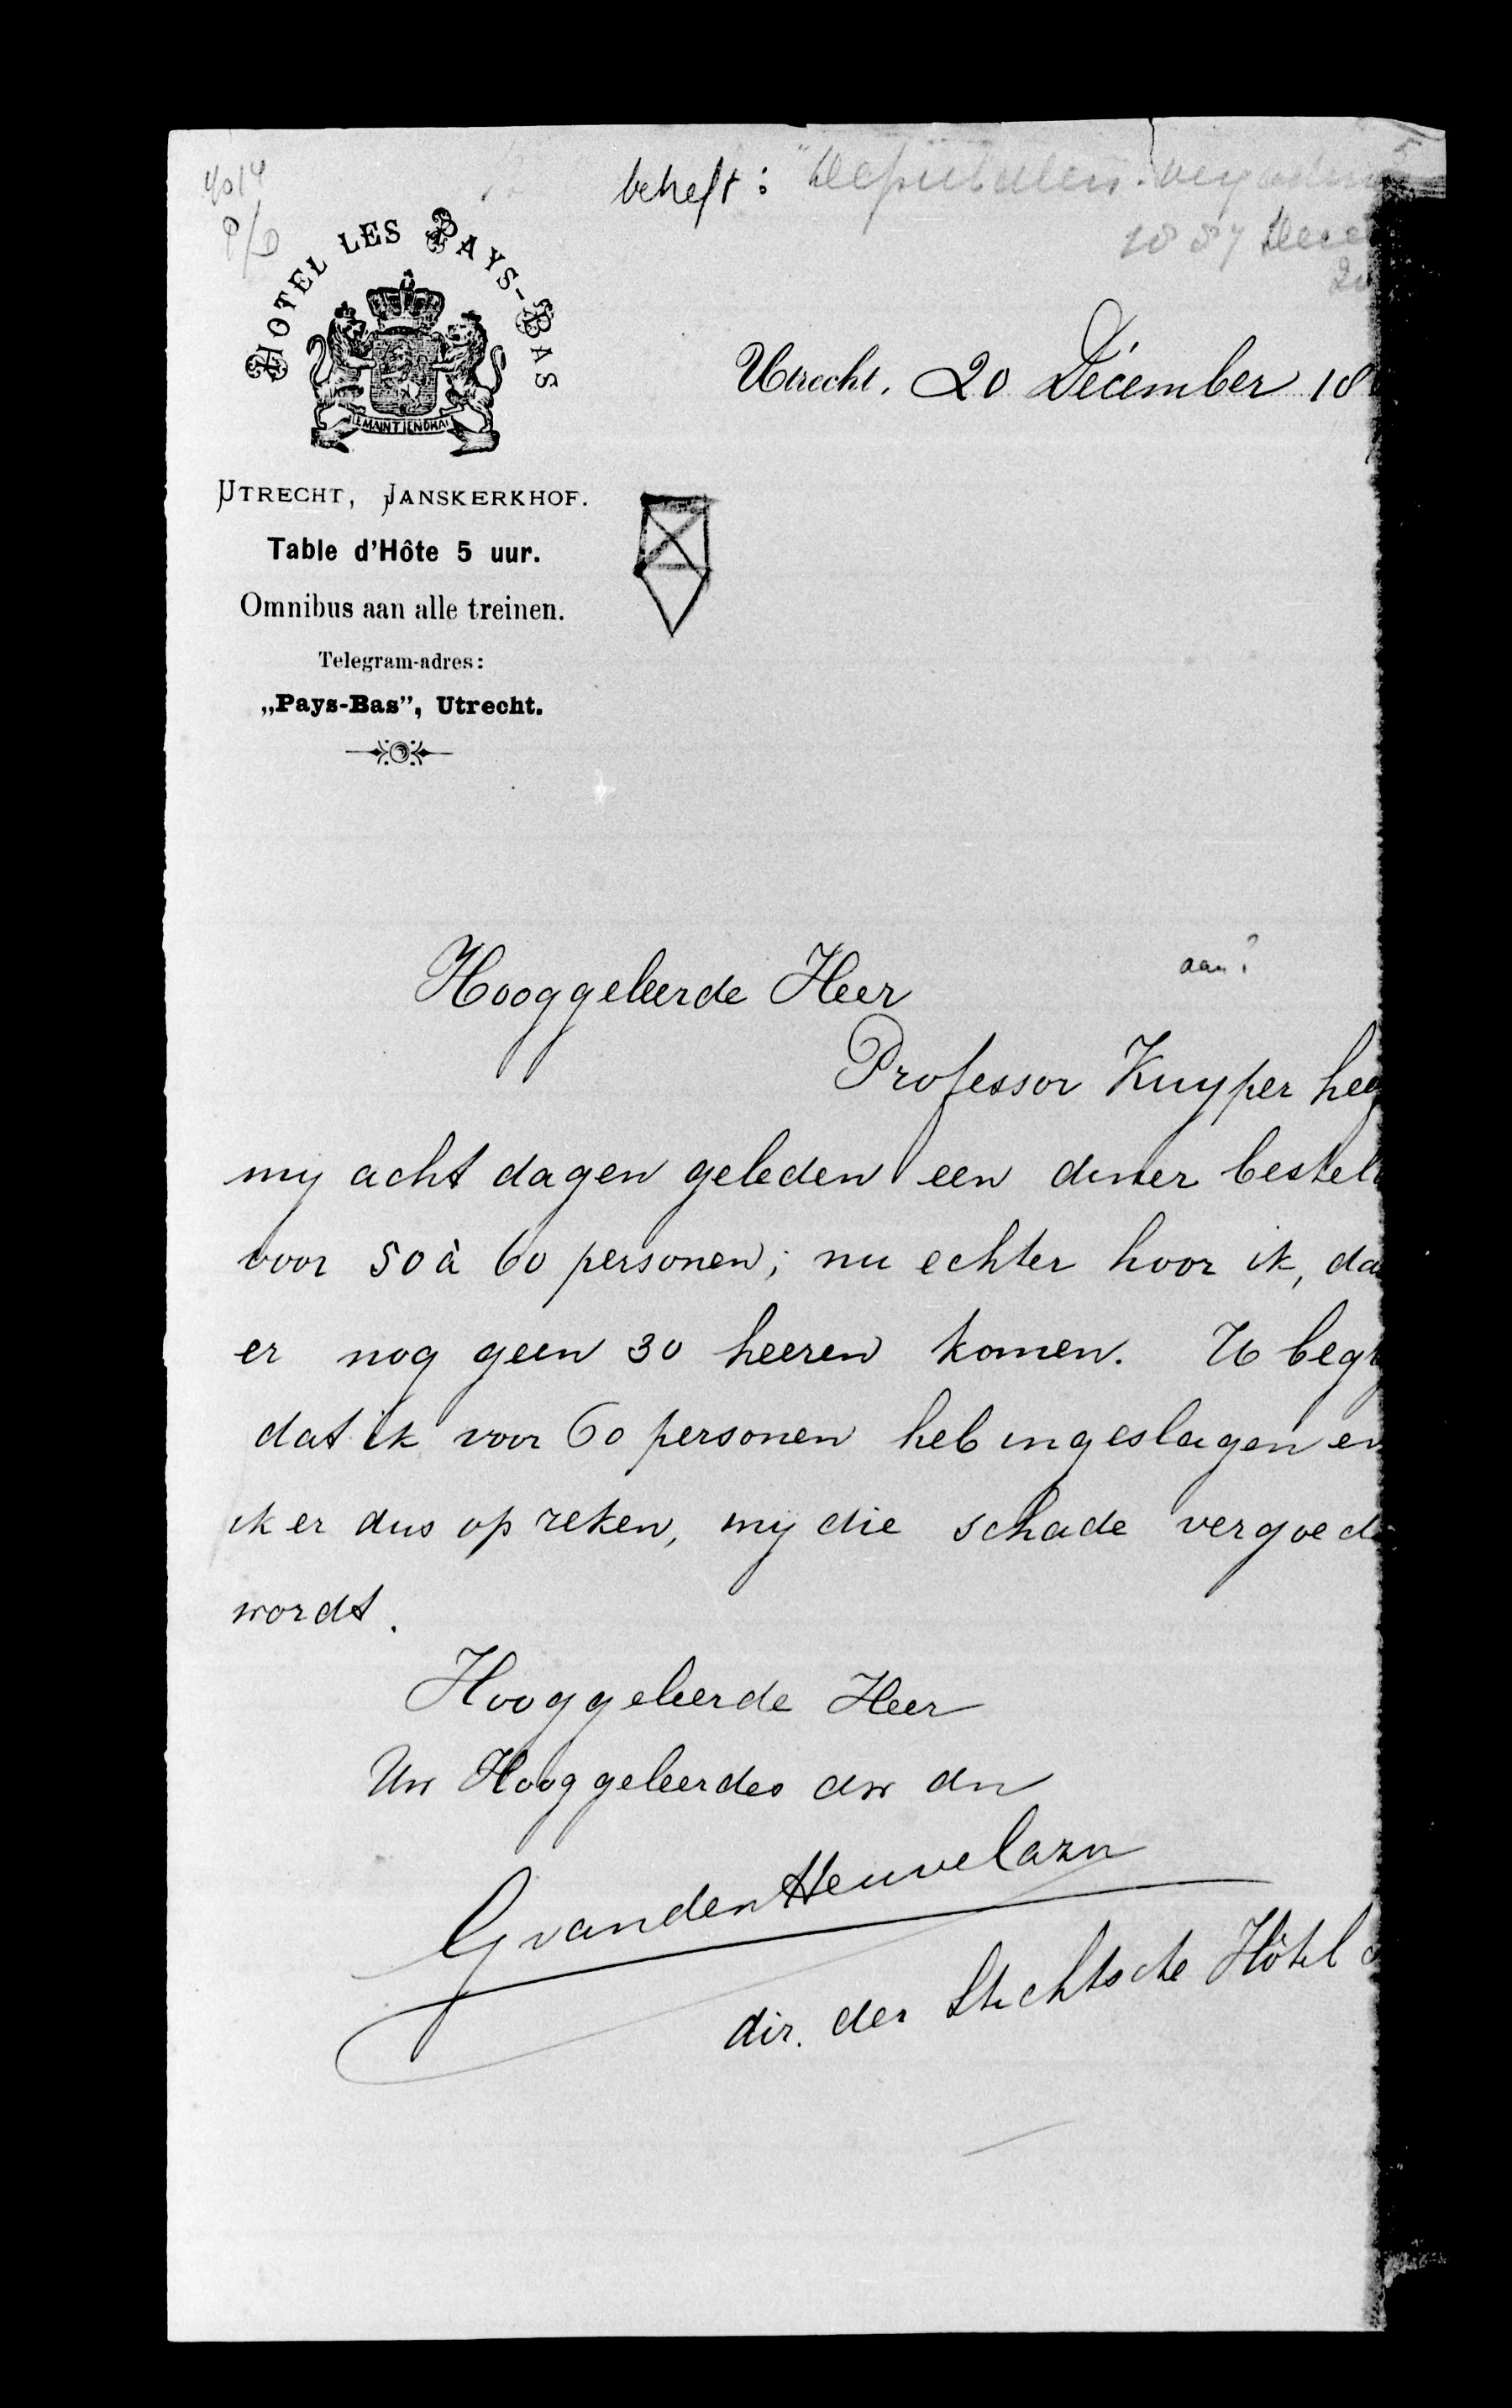 4014
betreft: "Deputaten-vergaderi
1887 Dece
20
HOTEL LES PAYS-BAS
JE MAINTIENDRAI
Utrecht, 20 Décember 18
UTRECHT, JANSKERKHOF.
Table d'Hôte 5 uur.
Omnibus aan alle treinen.
Telegram-adres:
„Pays-Bas”, Utrecht.
aan?
Hooggeleerde Heer
Professor Kuyper hee
mij acht dagen geleden een diner bestel
voor 50 à 60 personen; nu echter hoor ik, da
er nog geen 30 heeren komen. U begr
dat ik voor 60 personen heb ingeslagen en
ik er dus op reken, mij die schade vergoed
wordt.
Hooggeleerde Heer
Uw Hooggeleerdes dw dn
G van den Heuvel Azn
dir. der Stichtsche Hôtel